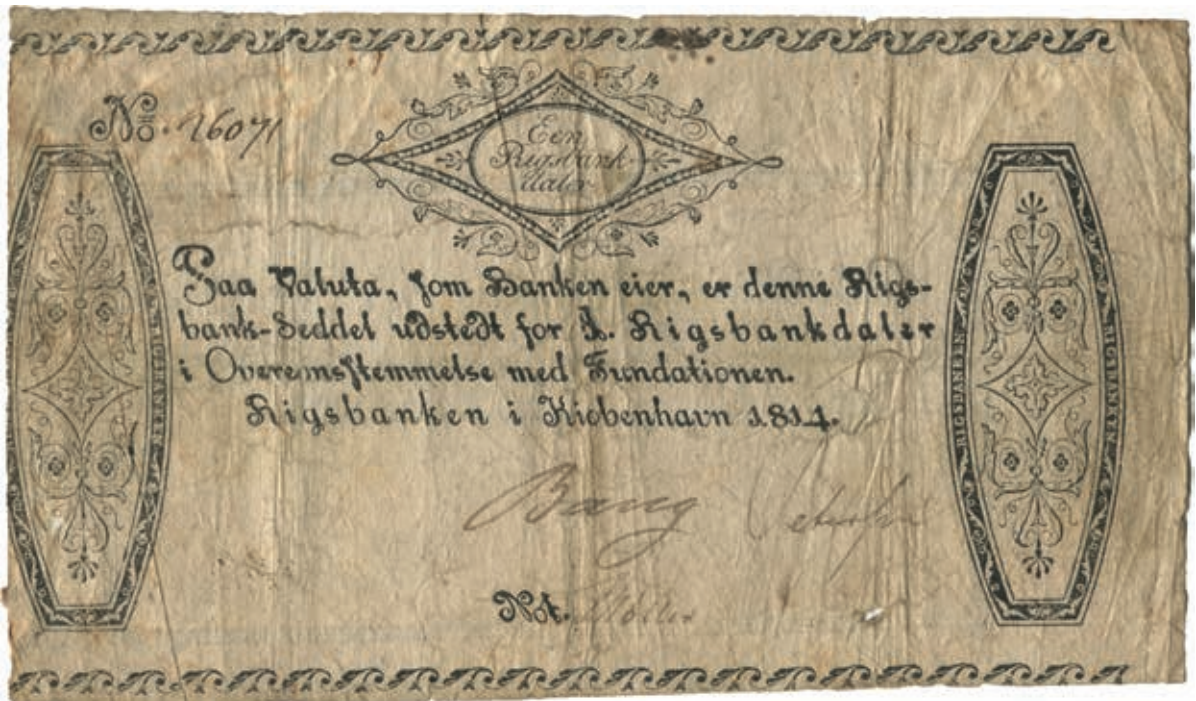 No. 26071
Een
Rigsbank
daler
Paa Valuta, som Banken eier, er denne Rigs-
bank-Seddel udstedt for 1. Rigsbankdaler
i Overeensstemmelse med Fundationen.
Rigsbanken i Kiøbenhavn 1814.
Bang
Not. Møller
RIGSBANKEN
RIGSBANKEN
RIGSBANKEN
RIGSBANKEN